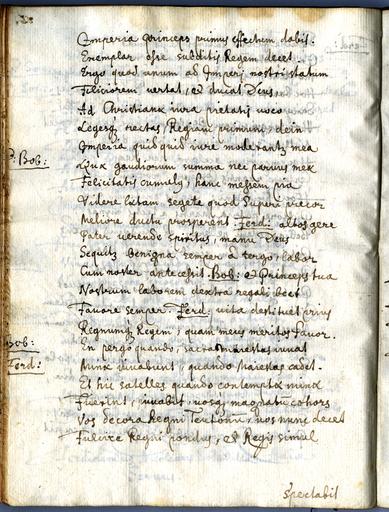 Imperia princeps primus effectum dabit.
Exemplar esse subditis Regem decet.
Ergo quod unum ad Imperij nostri statum
Feliciorem vertat, et ducat Deus,
Ad Christianæ iura pietatis voco
Legesq3 rectas, Regiam primum, dein
Imperia quidquid iure moderantur mea
Quæ gaudiorum summa nec parvus mex
Bob:
Felicitatis cumulus, hanc messem pia
Videre lætam segete quod Superi
Meliore ductu prosperent Ferd: altos gere
Pater verende spiritus, manu Deus
Sequetur benigna semper à tergo, labor
Cum noster antecessit. Bob: et Princeps tua
Nostrum laborem dextra regali beet
Favore semper. Ferd: vita destituet prius
Regnumq3 Regem, quam meus meritos favor.
Bob:
En pergo quando, sacra Maiestas iuvat
Ferd:
Minæ iuvabunt, quando Maiestas cadet.
Et hic satelles quando contemptæ minæ
Fuerint, iuvabit, vosq3 magnatum cohors
Vos decora Regni Teutonum, vos nunc decet
Fulcire Regni pondus, et Regis simul
spectabit